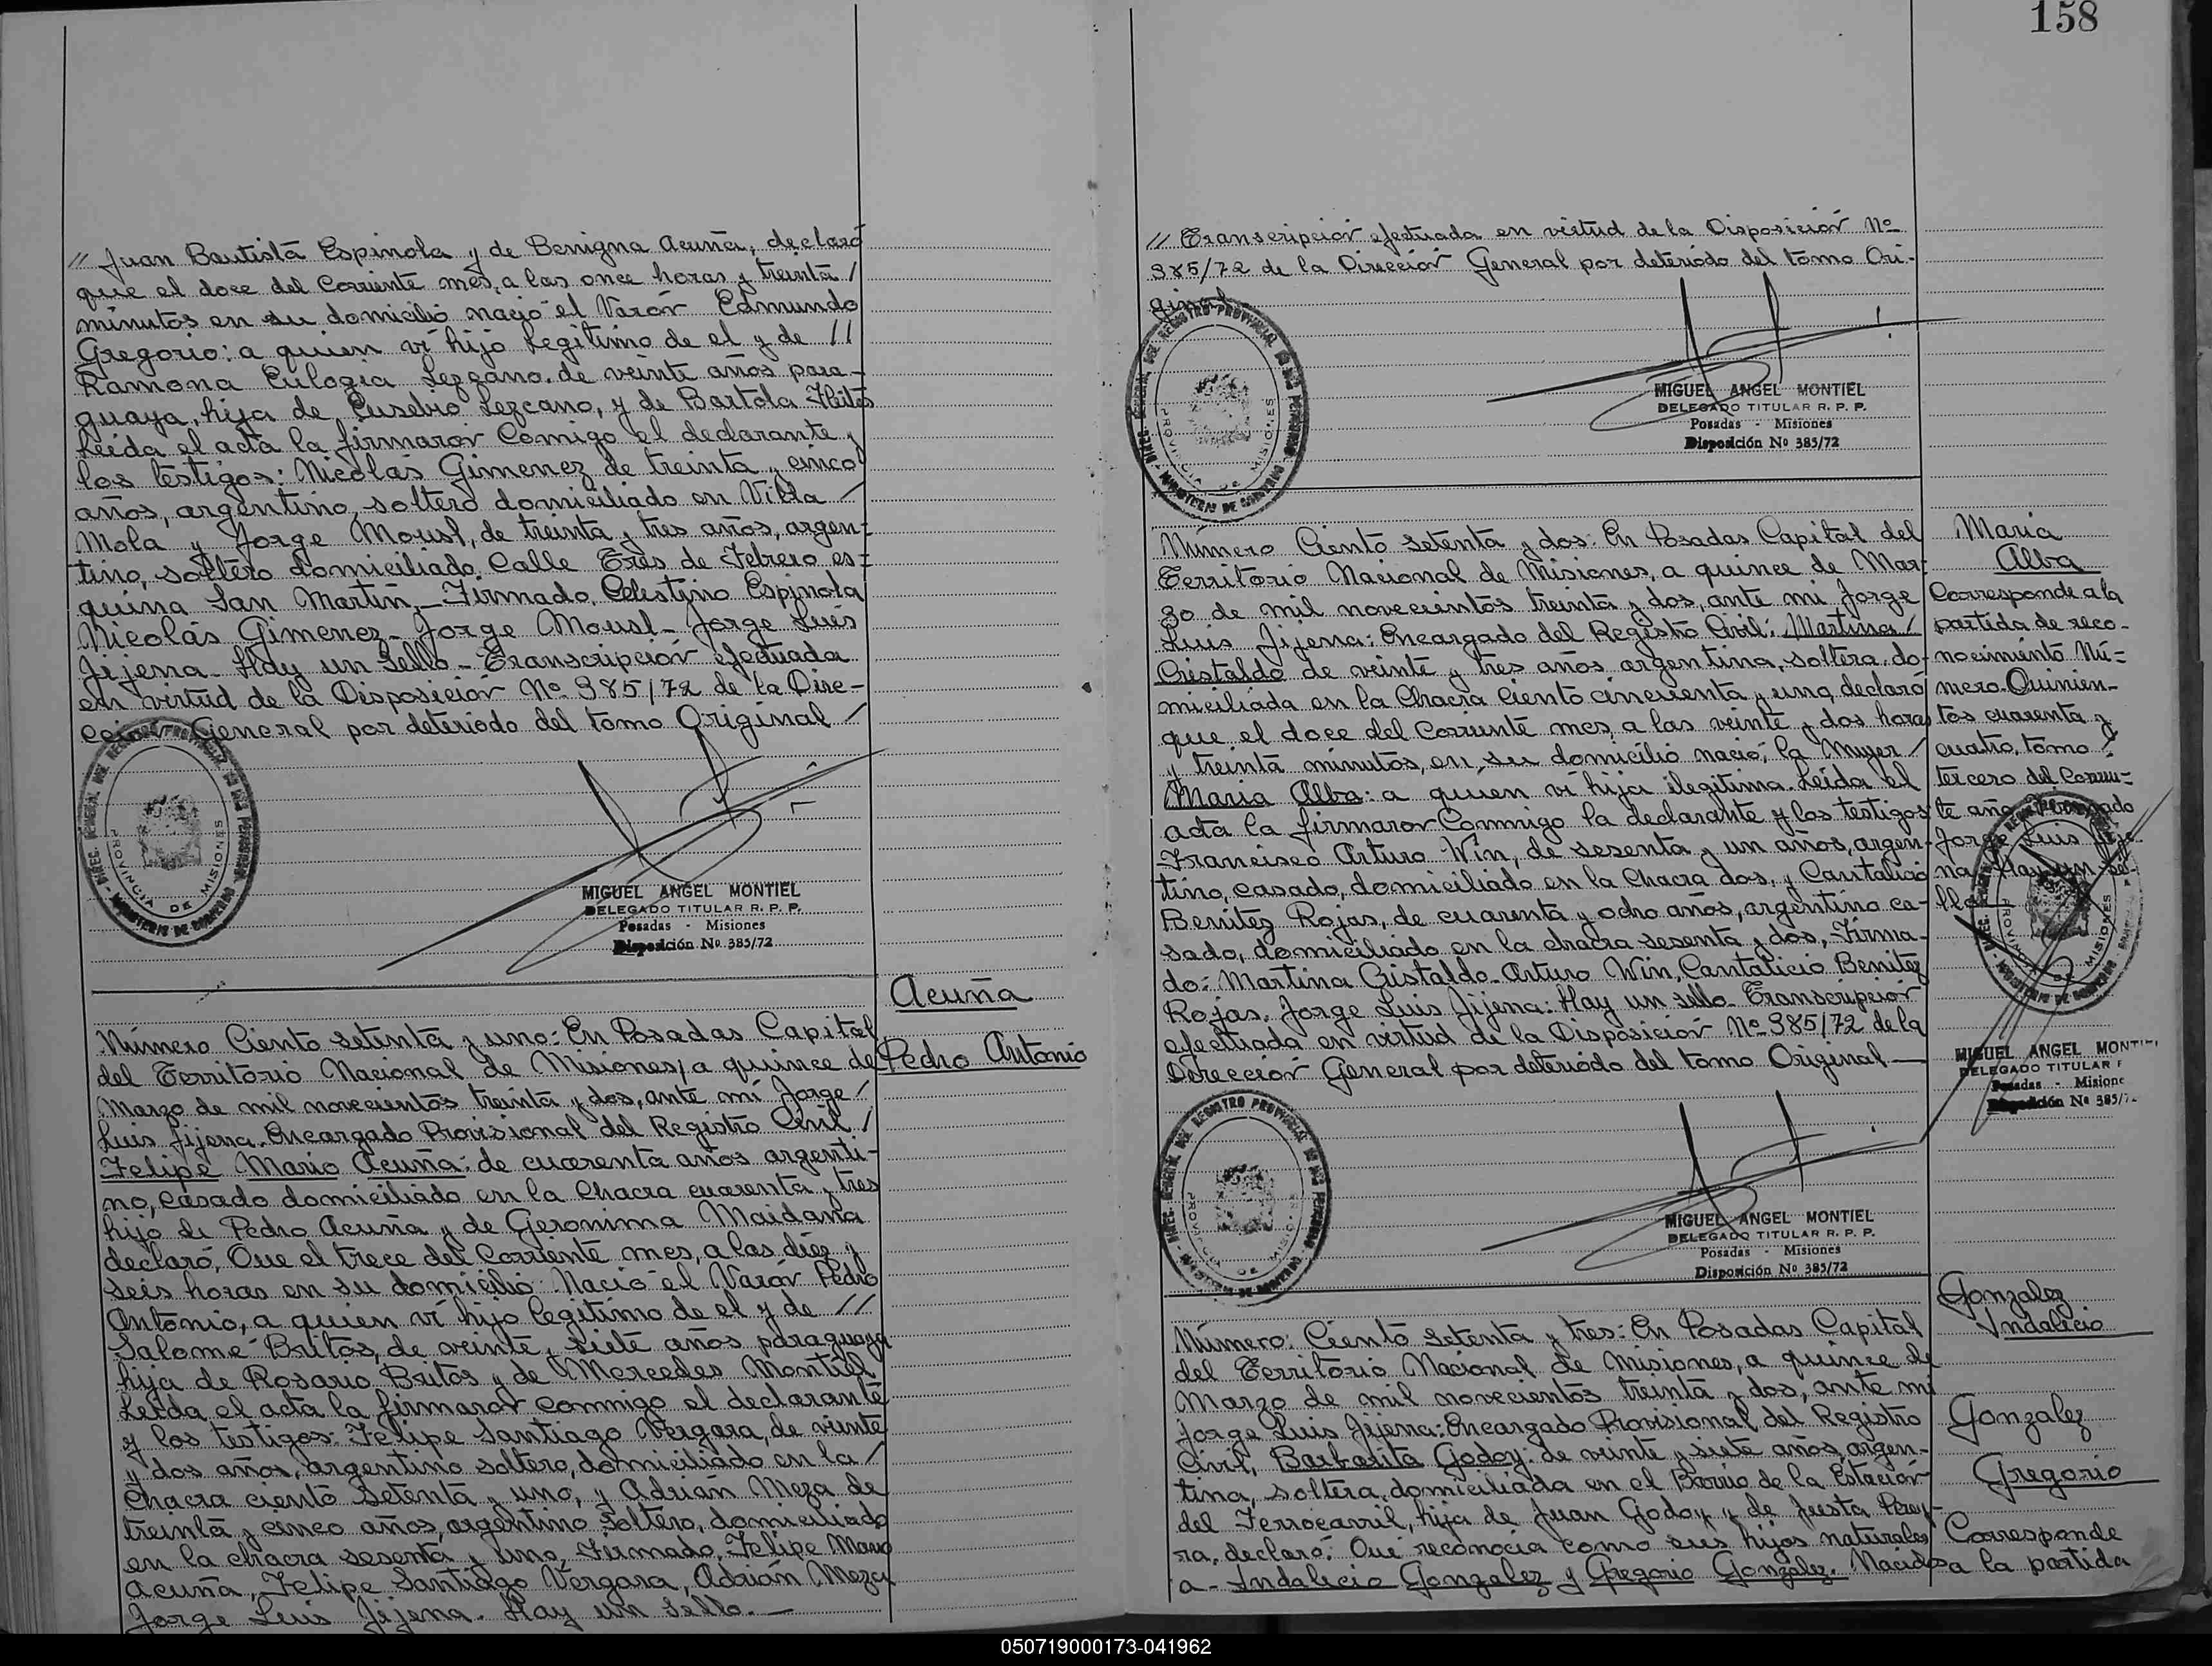 // Juan Bautista Espinola y de Benigna Acuña, declaró
que el doce del Corriente mes, a las once horas y treinta /
minutos en su domicilio nació el Varón Edmundo
Gregorio: a quien ví hijo legitimo de el y de //
Ramona Eulogia Lezcano, de veinte años para-
guaya, hija de Eusebio Lezcano, y de Bartola
Leída el acta la firmaron Comigo el declarante y
los testigos: Nicolás Gimenez de treinta y cinco
años, argentino, soltero domiciliado en Villa /
Mola y Jorge Mousl, de treinta y tres años, argen=
tino, soltero domiciliado Calle Tres de Febrero es=
quina San Martín,- Firmado. Celestino Espinola
Nicolás Gimenez- Jorge Mousl- Jorge Luís
Jijena- Hay un Sello- Transcripción efectuada
en virtud de la Disposición Nº 385/72 de la Dire-
cción General por deteriodo del tomo Original /
DIREC. GENERAL DEL REGISTRO PROVINCIAL DE LAS PERSONAS - MINISTERIO DE GOBIERNO -
PROVINCIA DE MISIONES
MIGUEL ANGEL MONTIEL
DELEGADO TITULAR R. P. P.
Posadas - Misiones
Disposición Nº 385/72
Acuña
Pedro Antonio
Número Ciento setenta y uno: En Posadas Capital
del Territorio Nacional de Misiones, a quince de
Marzo de mil novecientos treinta y dos, ante mí Jorge /
Luis Jijena. Encargado Provisional del Registro Civil /
Felipe Mario Acuña: de cuarenta años argenti-
no, casado domiciliado en la Chacra cuarenta y tres
hijo de Pedro Acuña y de Geronima Maidana
declaró, Que el trece del Corriente mes, a las diez y
seis horas en su domicilio: Nació el Varón Pedro
Antonio, a quien ví hijo legitimo de el y de //
Salomé Britos, de veinte y siete años paraguaya
hija de Rosario Britos y de Mercedes Montiel
Leída el acta la firmaron conmigo el declarante
y los testigos: Felipe Santiago Vergara, de veinte
y dos años, argentino soltero, domiciliado en la /
Chacra ciento setenta y uno, y Adrián Meza de
treinta y cinco años, argentino soltero, domiciliado
en la chacra sesenta y uno, Firmado. Felipe Mario
Acuña, Felipe Santiago Vergara, Adrián Meza
Jorge Luis Jijena. Hay un Sello.-
158
// Transcripción efectuada en virtud de la Disposición Nº
385/72 de la Dirección General por deteriodo del tomo Ori-
ginal
DIREC. GENERAL DEL REGISTRO PROVINCIAL DE LAS PERSONAS - MINISTERIO DE GOBIERNO -
PROVINCIA DE MISIONES
MIGUEL ANGEL MONTIEL
DELEGADO TITULAR R. P. P.
Posadas - Misiones
Disposición Nº 385/72
Número Ciento setenta y dos: En Posadas Capital del
Territorio Nacional de Misiones, a quince de Mar-
zo de mil novecientos treinta y dos, ante mi Jorge
Luis Jijena: Encargado del Registro Civil: Martina /
Cristaldo de veinte y tres años argentina, soltera, do-
miciliada en la Chacra Ciento cincuenta y uno, declaró
que el doce del Corriente mes, a las veinte y dos horas
y treinta minutos, en su domicilio nació, la Mujer /
María Alba: a quién ví hija ilegitima. Leída el
acta la firmaron Conmigo la declarante y los testigos
Francisco Arturo Win, de sesenta y un años, argen-
tino, casado, domiciliado en la Chacra dos, y Cantalicio
Benitez Rojas, de cuarenta y ocho años, argentino ca-
sado, domiciliado en la chacra sesenta y dos, Firma-
do: Martina Cristaldo- Arturo Win, Cantalicio Benitez
Rojas. Jorge Luis Jijena: Hay un sello- Transcripción
efectuada en virtud de la Disposición Nº 385/72 de la
Dirección General por deteriódo del tomo Original-
María
Alba
Corresponde a la
partida de reco-
nocimiento Nú=
mero Quinien-
tos cuarenta y
cuatro, tomo /
tercero del Corrien=
te año firmado
Jorge Luis Jije-
na Hay un se-
llo
MIGUEL ANGEL MONTI
DELEGADO TITULAR R
Posadas - Misione
Disposición Nº 385/7
DIREC. GENERAL DEL REGISTRO PROVINCIAL DE LAS PERSONAS - MINISTERIO DE GOBIERNO -
PROVINCIA DE MISIONES
MIGUEL ANGEL MONTIEL
DELEGADO TITULAR R. P. P.
Posadas - Misiones
Disposición Nº 385/72
Número: Ciento setenta y tres: En Posadas Capital
del Territorio Nacional de Misiones, a quince de
Marzo de mil novecientos treinta y dos, ante mi
Jorge Luis Jijena: Encargado Provisional del Registro
Civil, Barbarita Godoy: de veinte y siete años, argen-
tina, soltera, domiciliada en el Barrio de la Estación
del Ferrocarril, hija de Juan Godoy y de Justa Perey-
ra, declaró: Que reconocía como sus hijos naturales
a- Indalecio Gonzalez y Gregorio Gonzalez. Nacidos
Gonzalez
Indalecio
Gonzalez
Gregorio
Corresponde
a la partida
050719000173-041962